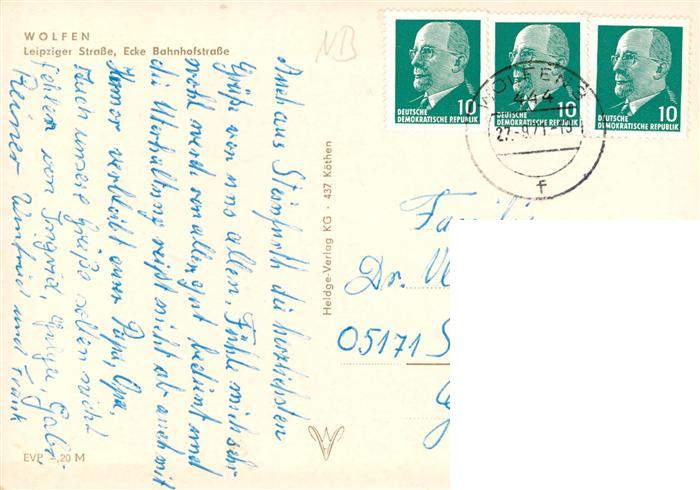 WOLFEN
Leipziger Straße, Ecke Bahnhofstraße
NB
DEUTSCHE DEMOKRATISCHE REPUBLIK 10
DEUTSCHE DEMOKRATISCHE REPUBLIK 10
DEUTSCHE DEMOKRATISCHE REPUBLIK 10
WOLFEN
444
27.-9.71-
f
Auch aus Steinfurth die herzlichsten
Grüße von uns allen. Fühle mich sehr
wohl werd von allen gut bedient und
die Unterhaltung reißt nicht ab auch mit
Humor verbleibt euer Papa, Opa.
Auch unsere Grüße sollen nicht
fehlen von Ingrid, Helga, Gabi,
Reiner Winfried und Frank
Heldge-Verlag KG · 437 Köthen
Dr.
05171
EVP -,20 M